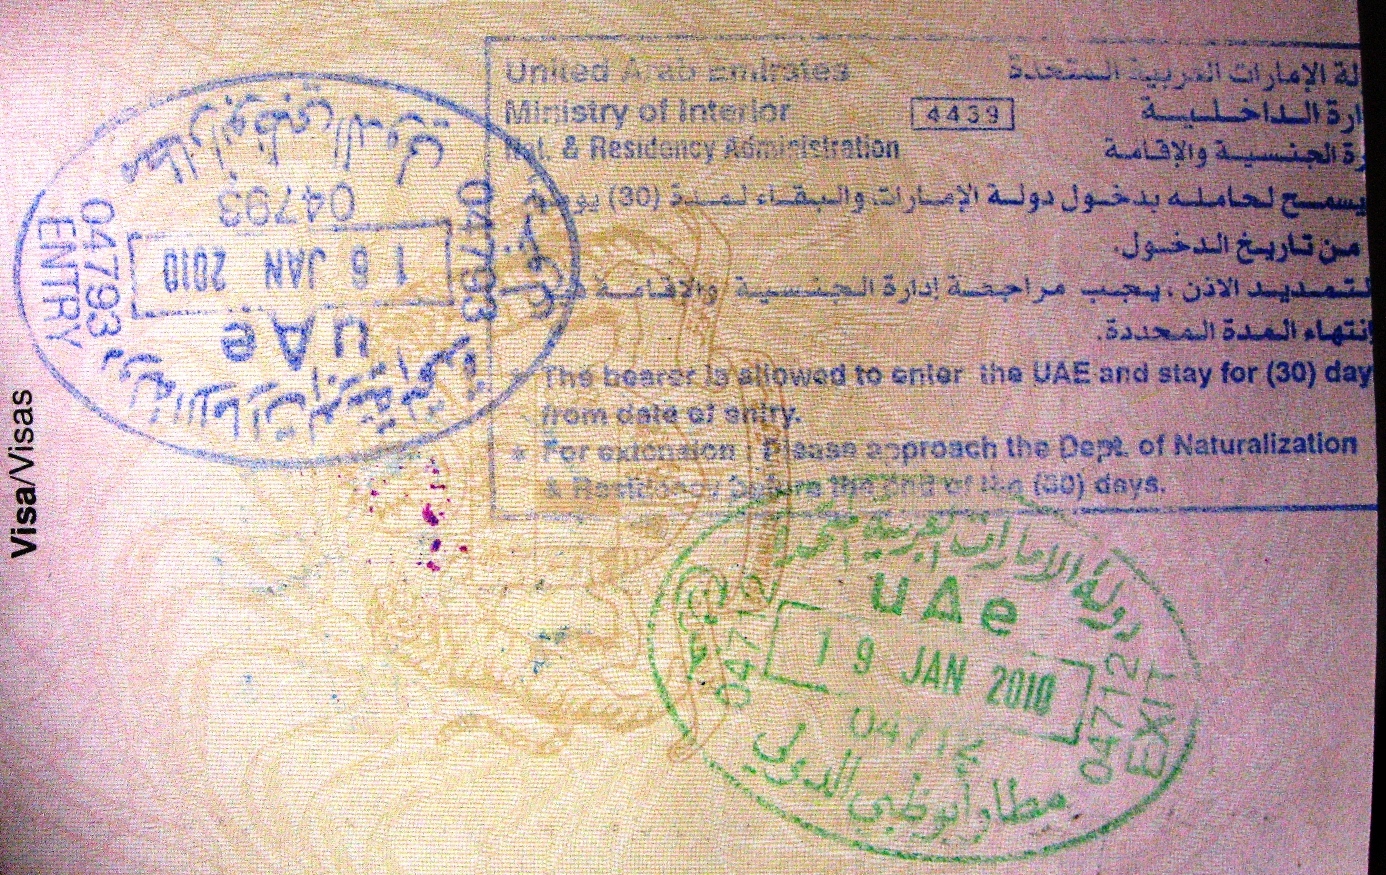 Visa/Visas
United Arab Emirates
Ministry of Interior
4439
Nat. & Residency Administration
لة الإمارات العربية المتحدة
ارة الداخلية
رة الجنسية والإقامة
يسمح لحامله بدخول دولة الإمارات والبقاء لمدة (30) يوم
من تاريخ الدخول.
لتمديد الاذن ، يجب مراجعة إدارة الجنسية والإقامة
إنتهاء المدة المحددة.
* The bearer is allowed to enter the UAE and stay for (30) day
from date of entry.
* For extension : Please approach the Dept. of Naturalization
& Residency before the end of the (30) days.
مطار أبوظبي الدولي
04793
04793
04793
ENTRY
16 JAN 2010
UAe
دولة الإمارات العربية المتحدة
دولة الامارات العربية المتحدة
UAe
19 JAN 2010
04712
04712
04712
EXIT
مطار أبوظبي الدولي